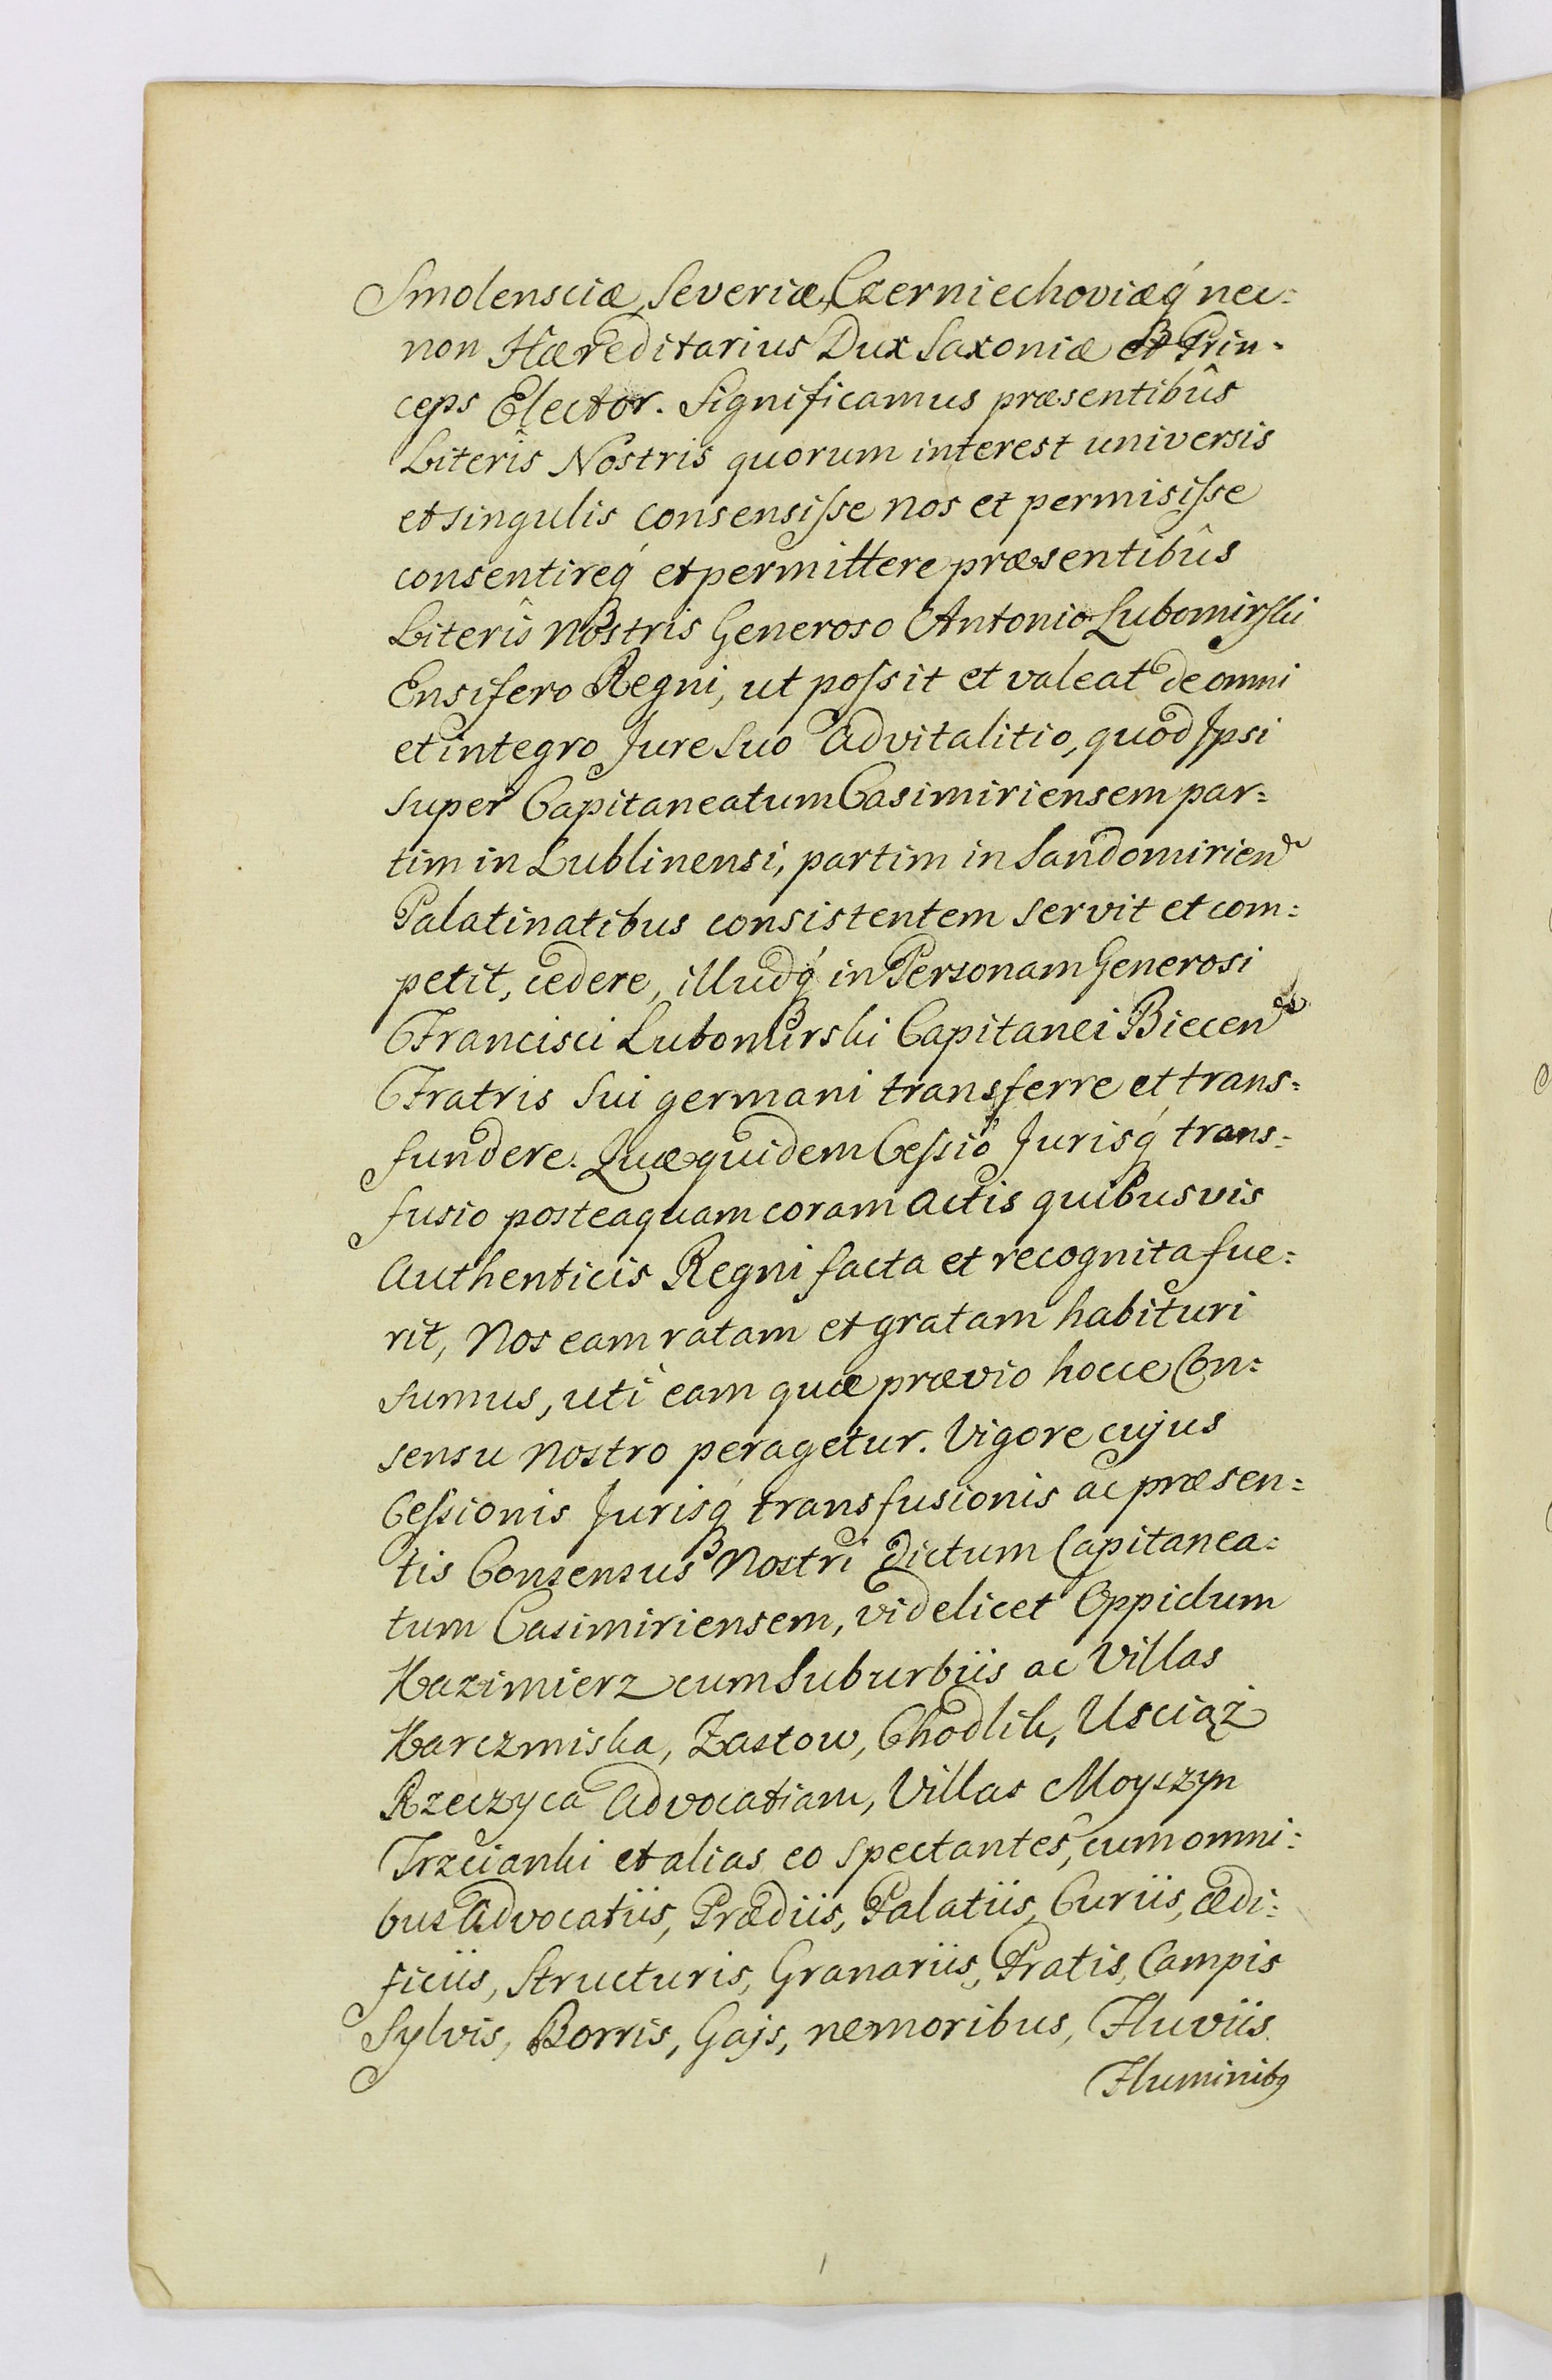 Smolensciæ, Severiæ, Czerniechoviæq́ nec:
non Hæreditarius Dux Saxoniæ et Prin:
ceps Elector. Significamus præsentibûs
Literîs Nostris quorum interest universis
et singulis consensiſse nos et permisiſse
consentireq́ et permittere præsentibûs
Literîs nostris Generoso Antonio Lubomirski
Ensifero Regni, ut poſsit et valeat de omni
et integro Jure Suo advitalitio, quod Ipsi
super Capitaneatum Casimiriensem par:
tim in Lublinensi, partim in Sandomirien
Palatinatibus consistentem servit et com:
petit, cedere, illudq́ in Personam Generosi
Francisci Lubomirski Capitanei Biecen
Fratris Sui germani transferre et trans:
fundere. Quæ quidem Ceſsio Jurisq́ trans:
fusio posteaquam coram actis quibusvis
authenticis Regni facta et recognita fue:
rit, Nos eam ratam et gratam habituri
sumus, uti eam quæ prævio hocce Con:
sensu nostro peragetur. Vigore cujus
Ceſsionis Jurisq́ transfusionis ac præsen:
tis Consensus Nostri dictum Capitanea:
tum Casimiriensem, videlicet Oppidum
Kazimierz cum Suburbiis ac Villas
Karczmiska, Zastow, Chodlik, Usciąż
Rzeczyca advocatiam, Villas Moyszyn
Trzcianki et alias eo spectantes, cum omni:
bus advocatiis, Prædiis, Palatiis, Curiis, ædi:
ficiis, Structuris, Granariis, Pratis, Campis
Sylvis, Borris, Gajs, nemoribus, Fluviis
Fluminibꝰ